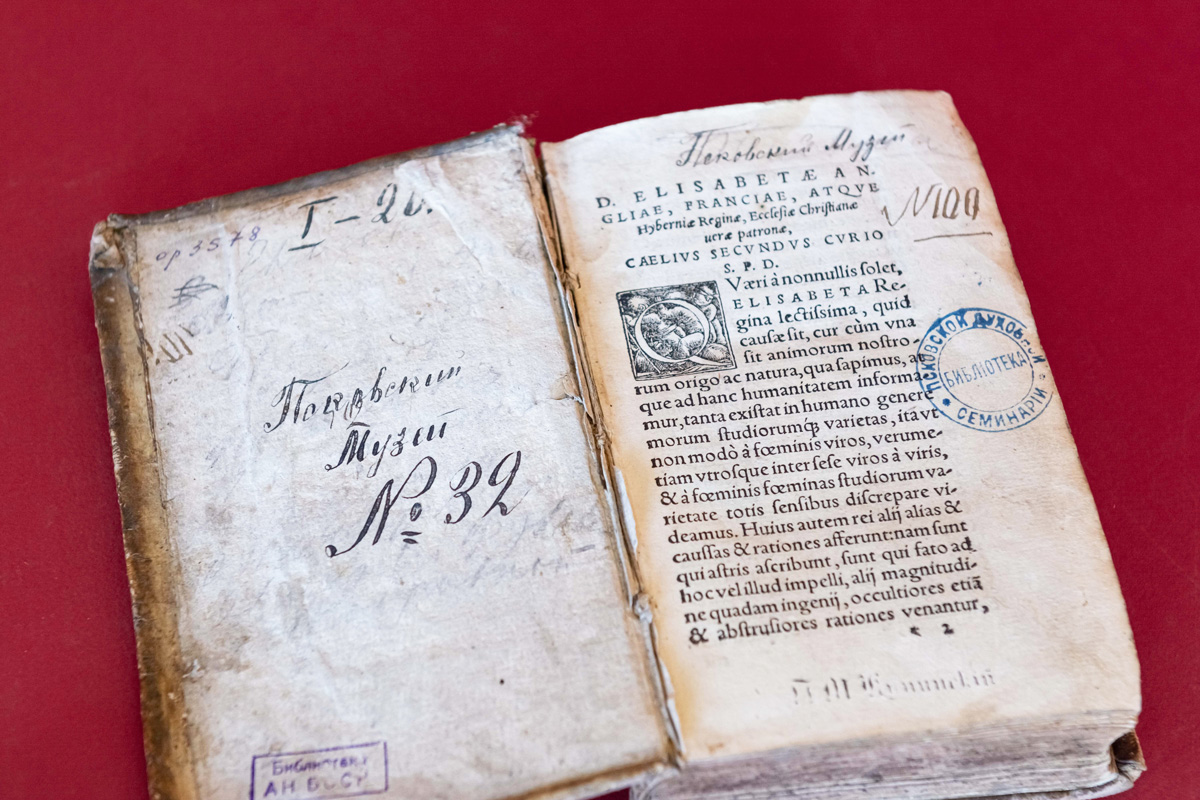 I – 20.
ор 3578
Псковский
Музей
№ 32
Библиотека
АН БССР
Псковский Музей
D. ELISABETÆ AN-
GLIAE, FRANCIAE, ATQVE
Hyberniæ Reginæ, Ecclesiæ Christianæ
ueræ patronæ,
CAELIVS SECVNDVS CVRIO
S. P. D.
N 100
QVæri à nonnullis ſolet,
ELISABETA Re-
gina lectiſsima, quid
cauſæ ſit, cur cùm vna
ſit animorum noſtro-
rum origo ac natura, qua ſapimus, at
que ad hanc humanitatem informa-
mur, tanta exiſtat in humano genere
morum ſtudiorumq́ꝫ varietas, itá vt
non modò à fœminis viros, verume-
tiam vtroſque inter ſeſe viros à viris,
& à fœminis fœminas ſtudiorum va-
rietate totis ſenſibus diſcrepare vi-
deamus. Huius autem rei alij alias &
cauſſas & rationes afferunt: nam ſunt
qui aſtris aſcribunt, ſunt qui fato ad
hoc vel illud impelli, alij magnitudi-
ne quadam ingenij, occultiores etiã
& abſtruſiores rationes venantur,
2
ПСКОВСКОЙ ДУХОВНОЙ
БИБЛІОТЕКА
СЕМИНАРІИ